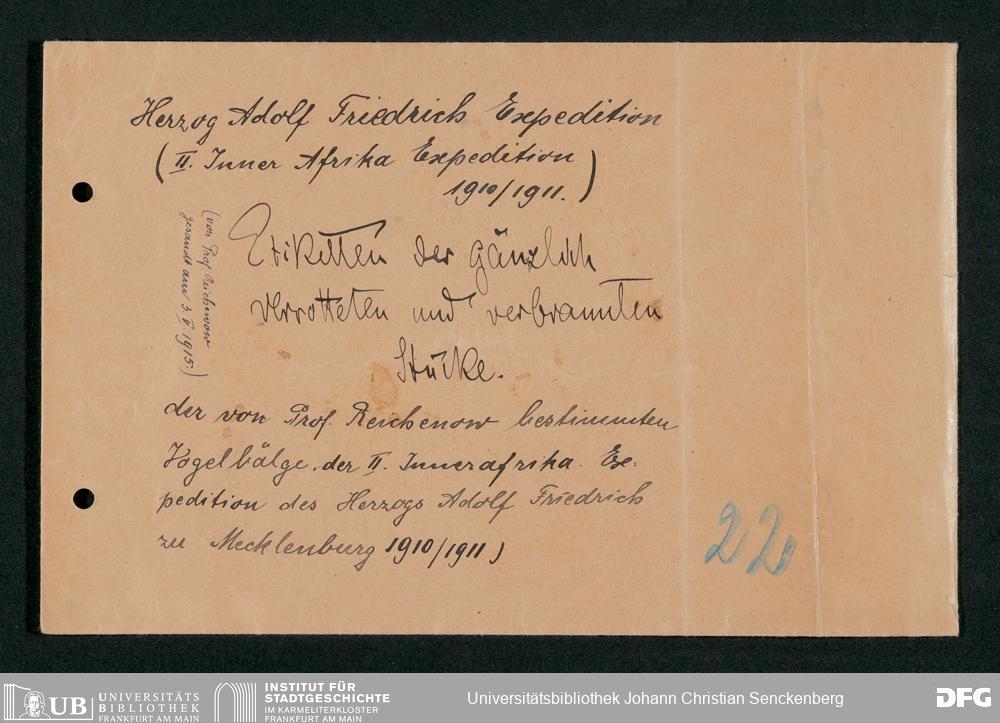 Herzog Adolf Friedrich Expedition
(II. Inner Afrika Expedition
1910/1911.)
(von Prof. Reichenow
gesandt am 3. V. 1915.)
Etiketten der gänzlich
verrotteten und verbrannten
Stücke.
der von Prof. Reichenow bestimmten
Vogelbälge der II. Innerafrika Ex-
pedition des Herzogs Adolf Friedrich
zu Mecklenburg 1910/1911)
22
UB UNIVERSITÄTS
BIBLIOTHEK
FRANKFURT AM MAIN
INSTITUT FÜR
STADTGESCHICHTE
IM KARMELITERKLOSTER
FRANKFURT AM MAIN
Universitätsbibliothek Johann Christian Senckenberg
DFG